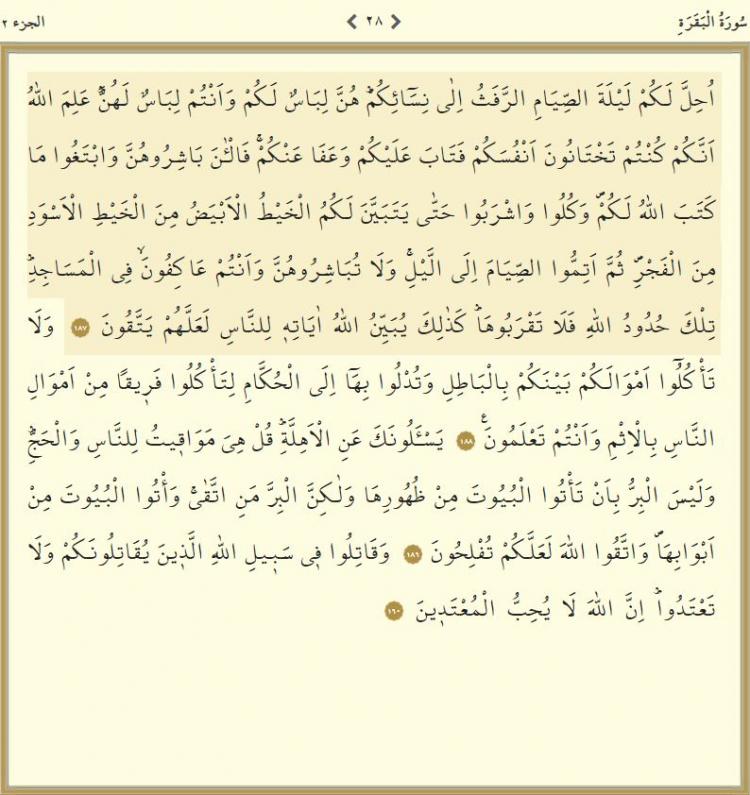 سُورَةُ الْبَقَرَةِ ٢٨ الجزء ٢
اُحِلَّ لَكُمْ لَيْلَةَ الصِّيَامِ الرَّفَثُ اِلٰى نِسَٓائِكُمْۜ هُنَّ لِبَاسٌ لَكُمْ وَاَنْتُمْ لِبَاسٌ لَهُنَّۜ عَلِمَ اللّٰهُ
اَنَّكُمْ كُنْتُمْ تَخْتَانُونَ اَنْفُسَكُمْ فَتَابَ عَلَيْكُمْ وَعَفَا عَنْكُمْۚ فَالْـٰٔنَ بَاشِرُوهُنَّ وَابْتَغُوا مَا
كَتَبَ اللّٰهُ لَكُمْۖ وَكُلُوا وَاشْرَبُوا حَتّٰى يَتَبَيَّنَ لَكُمُ الْخَيْطُ الْاَبْيَضُ مِنَ الْخَيْطِ الْاَسْوَدِ
مِنَ الْفَجْرِۖ ثُمَّ اَتِمُّوا الصِّيَامَ اِلَى الَّيْلِۚ وَلَا تُبَاشِرُوهُنَّ وَاَنْتُمْ عَاكِفُونَۙ فِى الْمَسَاجِدِۜ
تِلْكَ حُدُودُ اللّٰهِ فَلَا تَقْرَبُوهَاۜ كَذٰلِكَ يُبَيِّنُ اللّٰهُ اٰيَاتِهٖ لِلنَّاسِ لَعَلَّهُمْ يَتَّقُونَ ١٨٧ وَلَا
تَأْكُلُٓوا اَمْوَالَكُمْ بَيْنَكُمْ بِالْبَاطِلِ وَتُدْلُوا بِهَٓا اِلَى الْحُكَّامِ لِتَأْكُلُوا فَرٖيقًا مِنْ اَمْوَالِ
النَّاسِ بِالْاِثْمِ وَاَنْتُمْ تَعْلَمُونَࣖ ١٨٨ يَسْـَٔلُونَكَ عَنِ الْاَهِلَّةِۜ قُلْ هِىَ مَوَاقٖيتُ لِلنَّاسِ وَالْحَجِّۜ
وَلَيْسَ الْبِرُّ بِاَنْ تَأْتُوا الْبُيُوتَ مِنْ ظُهُورِهَا وَلٰكِنَّ الْبِرَّ مَنِ اتَّقٰىۚ وَأْتُوا الْبُيُوتَ مِنْ
اَبْوَابِهَاۖ وَاتَّقُوا اللّٰهَ لَعَلَّكُمْ تُفْلِحُونَ ١٨٩ وَقَاتِلُوا فٖى سَبٖيلِ اللّٰهِ الَّذٖينَ يُقَاتِلُونَكُمْ وَلَا
تَعْتَدُواۜ اِنَّ اللّٰهَ لَا يُحِبُّ الْمُعْتَدٖينَ ١٩٠